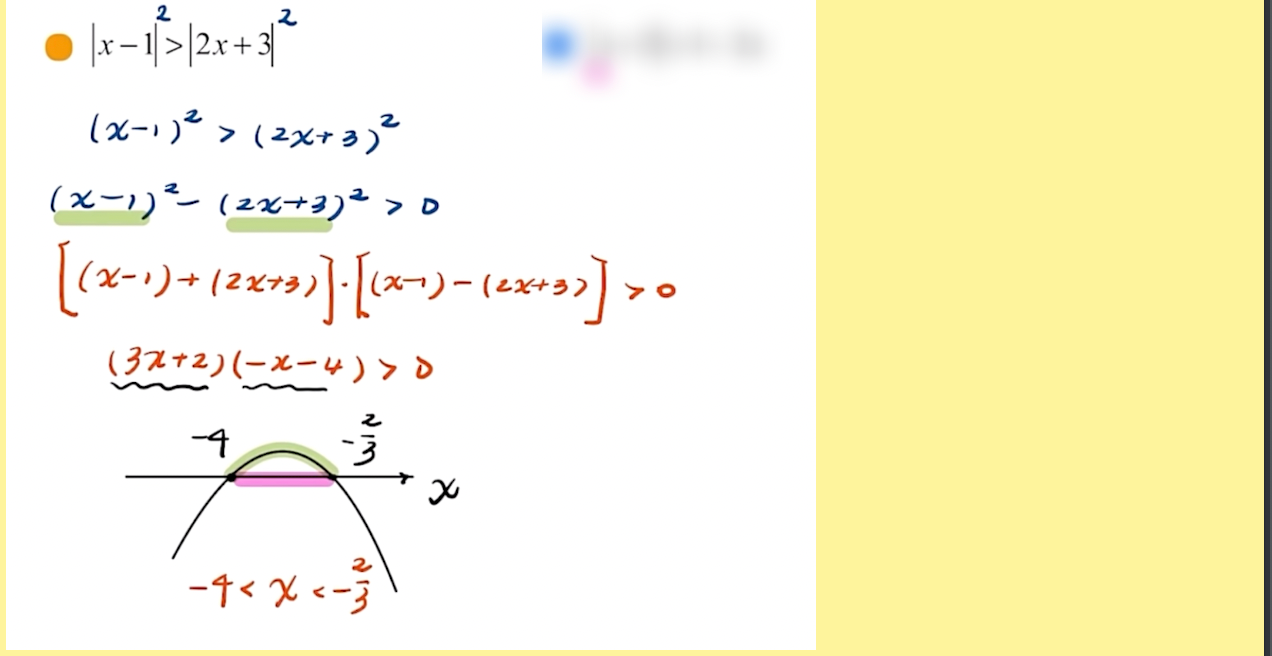 |x-1|² > |2x+3|²
(x-1)² > (2x+3)²
(x-1)² - (2x+3)² > 0
[(x-1)+(2x+3)]·[(x-1)-(2x+3)] > 0
(3x+2)(-x-4) > 0
-4 -2/3
x
-4 < x < -2/3